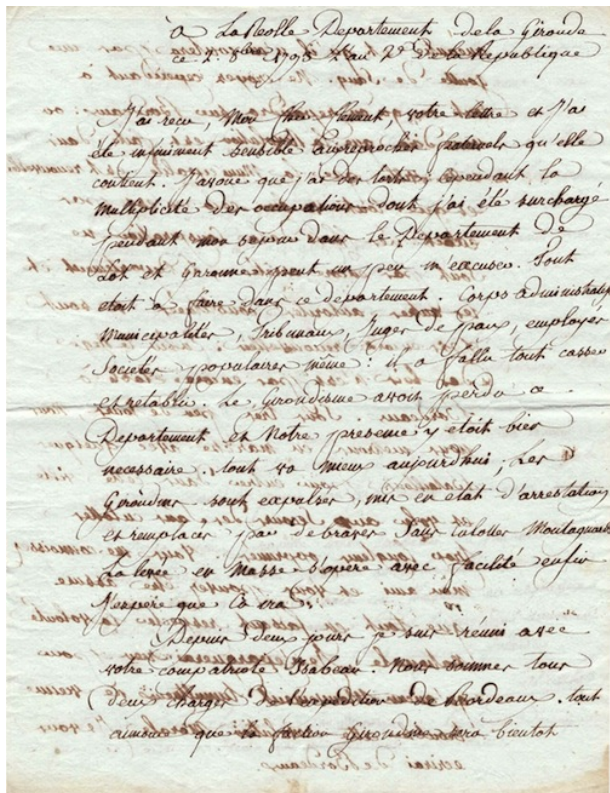 à La Reolle Departement de la Gironde
ce 2. 8bre 1793 L'an 2e de la Republique
J'ai reçu, Mon cher Clement, votre lettre et j'ai
été infiniment sensible aux reproches fraternels qu'elle
contient. J'avoue que j'ai des torts; cependant la
multiplicité des occupations dont j'ai été surchargé
pendant mon sejour dans le Departement de
Lot et Garonne peut un peu m'excuser. Tout
etoit à faire dans ce departement. Corps administratifs
Municipalités, Tribunaux, Juges de paix, employés
Societés populaires même: il a fallu tout casser
et retablir. Le Girondisme avoit perdu ce
Departement et Notre presence y etoit bien
necessaire. tout va mieux aujourd'hui, Les
Girondins sont expulsés, mis en etat d'arrestation
et remplacés par de braves Sans culottes Montagnards
La levée en Masse s'opere avec facilité enfin
J'espere que ça ira.
Depuis deux jours je suis réuni avec
votre compatriote Isabeau. Nous sommes tous
deux chargés de l'expedition de Bordeaux. tout
annonce que la faction Girondine sera bientot